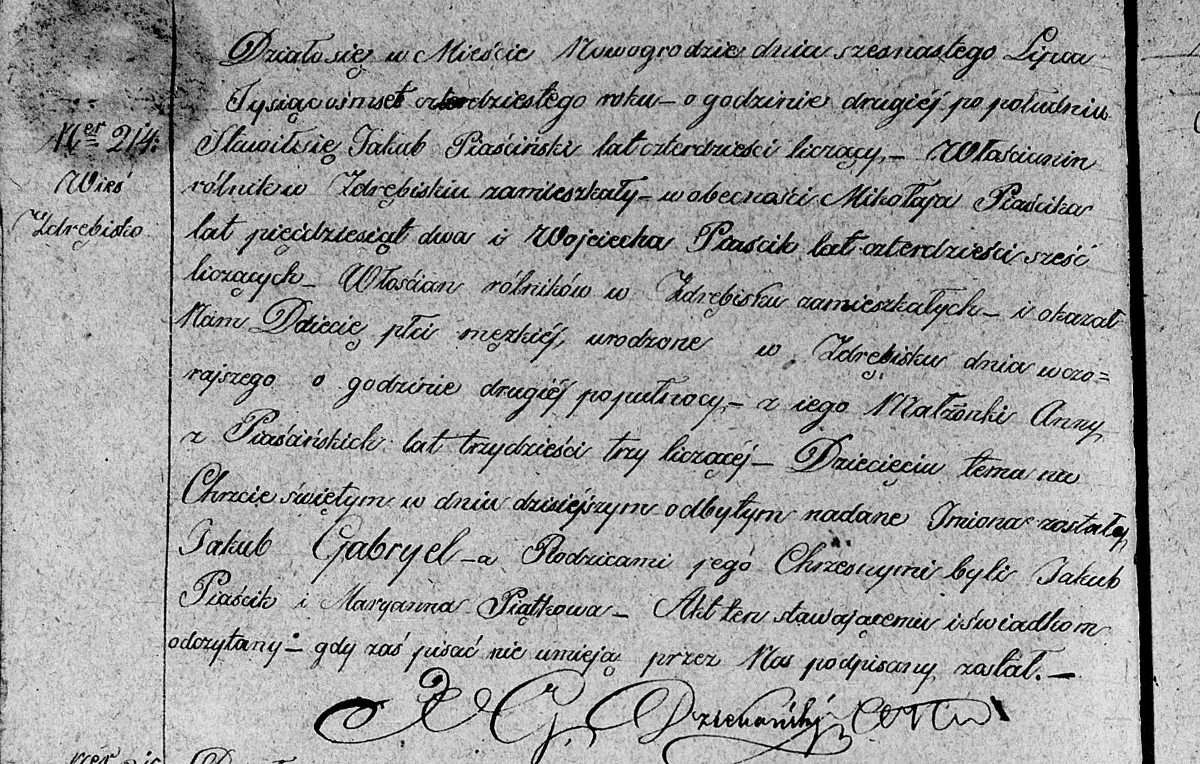 Działo się w Mieście Nowogrodzie dnia szesnastego Lipca
Tysiąc ośmset czterdziestego roku – o godzinie drugiéj po południu
Ner 214.
Stawił się Jakub Piaściński lat czterdzieści liczący, – Włościanin
Wieś
rólnik w Zdrębisku zamieszkały – w obecności Mikołaja Piaścika
Zdrębisko
lat pięćdziesiąt dwa i Wojciecha Piaścik lat czterdzieści sześć
liczących – Włościan rólników w Zdrębisku zamieszkałych – i okazał
Nam Dziecię płci męzkiéj, urodzone w Zdrębisku dnia wczo=
rajszego o godzinie drugiéj po pułnocy, – z iego Małżonki Anny
z Piaścińskich lat trzydzieści trzy liczącéj – Dziecięciu temu na
Chrzcie świętym w dniu dzisiéjszym odbytym nadane Imiona zostały
Jakub Gabryel – a Rodzicami jego Chrzesnymi byli Jakub
Piaścik i Maryanna Piątkowa – Akt ten stawającemu i świadkom
odczytany – gdy zaś pisać nie umieją przez Nas podpisany został. –
X G Dziekoński